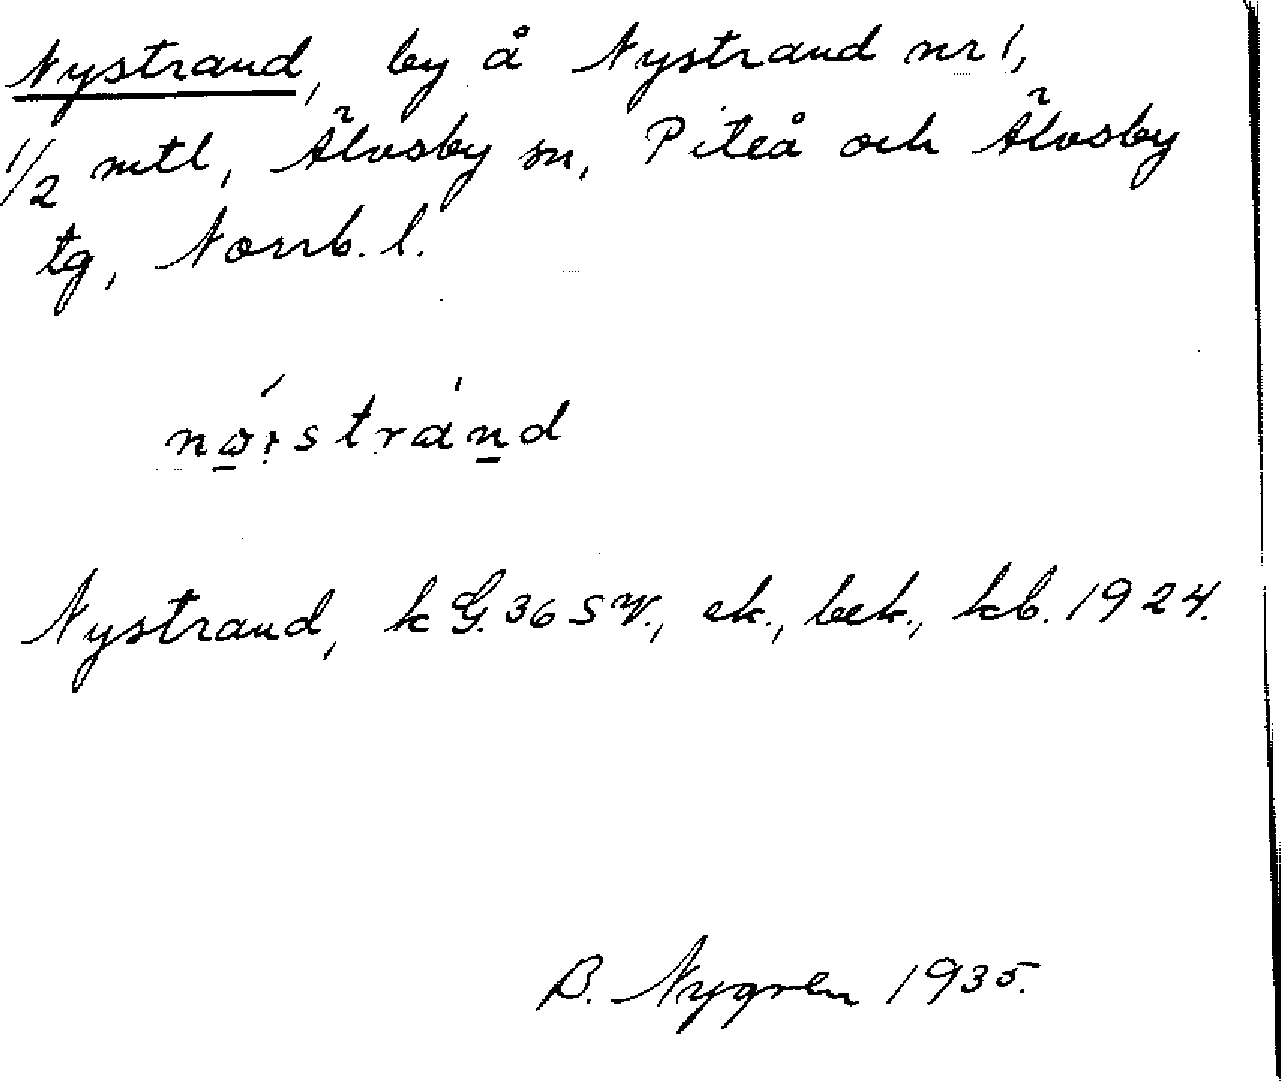 Nystrand, by å Nystrand nr 1,
1/2 mtl, Älvsby sn, Piteå och Älvsby
tg, Norrb. l.
Nystrand, k G. 36 SV., ek., bek., kb. 1924.
B. Nygren 1935.